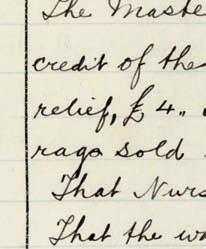 The Maste
credit of the
relief, £4..
rags sold
That Nurs
That the wo